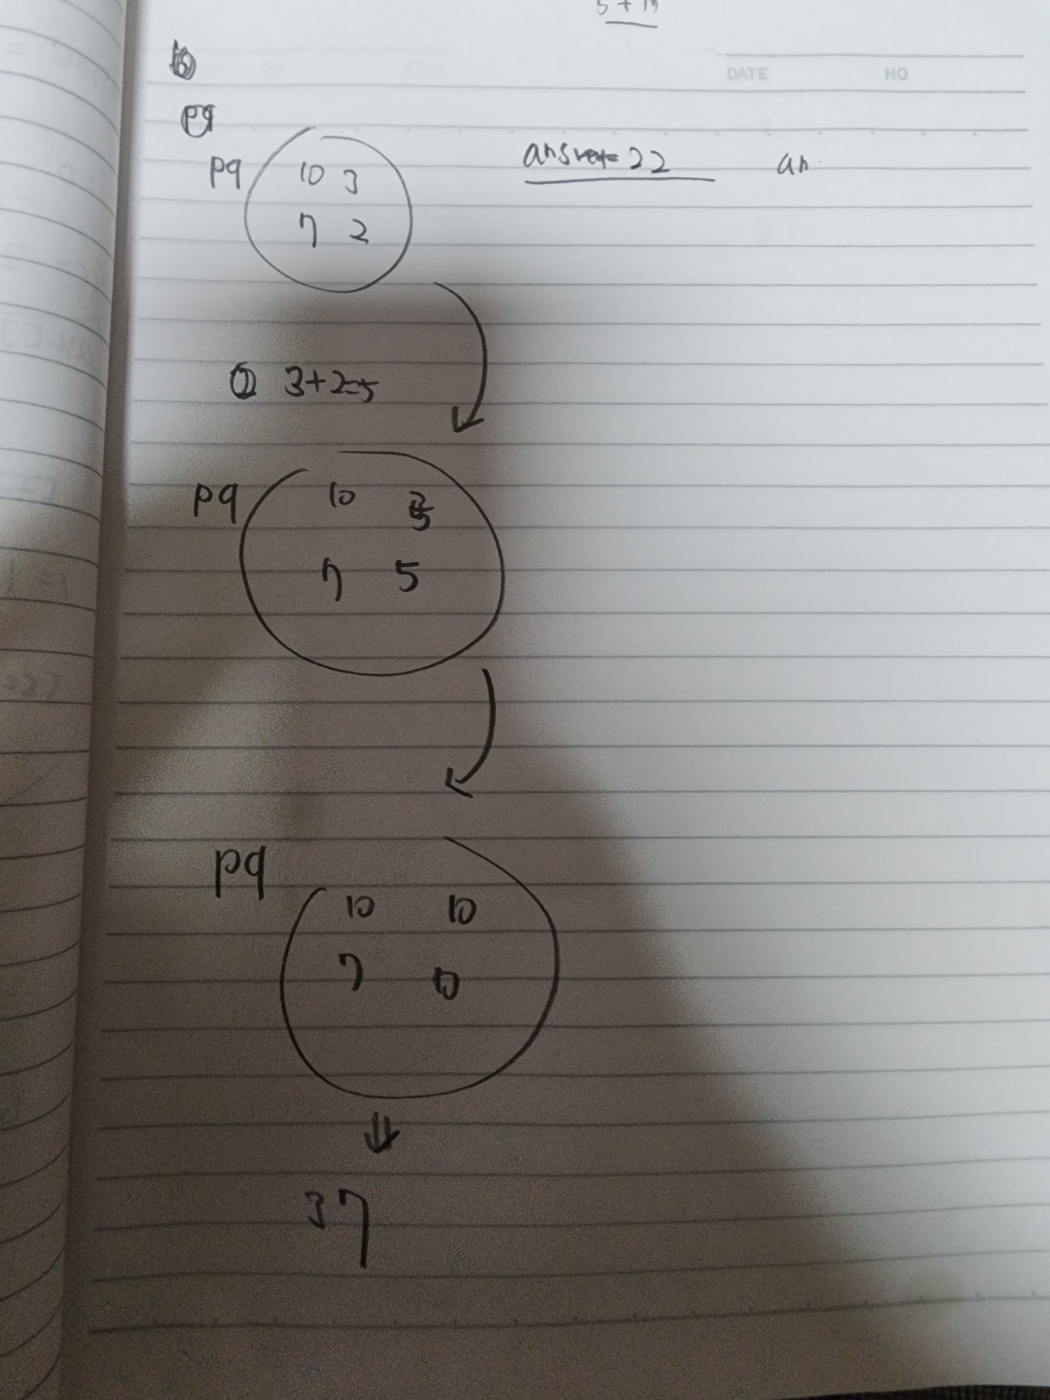 5 + 19
DATE NO
pq
pq 10 3 answer= 22 an
7 2
① 3+2=5
pq 10
7 5
pq
10 10
7 10
37